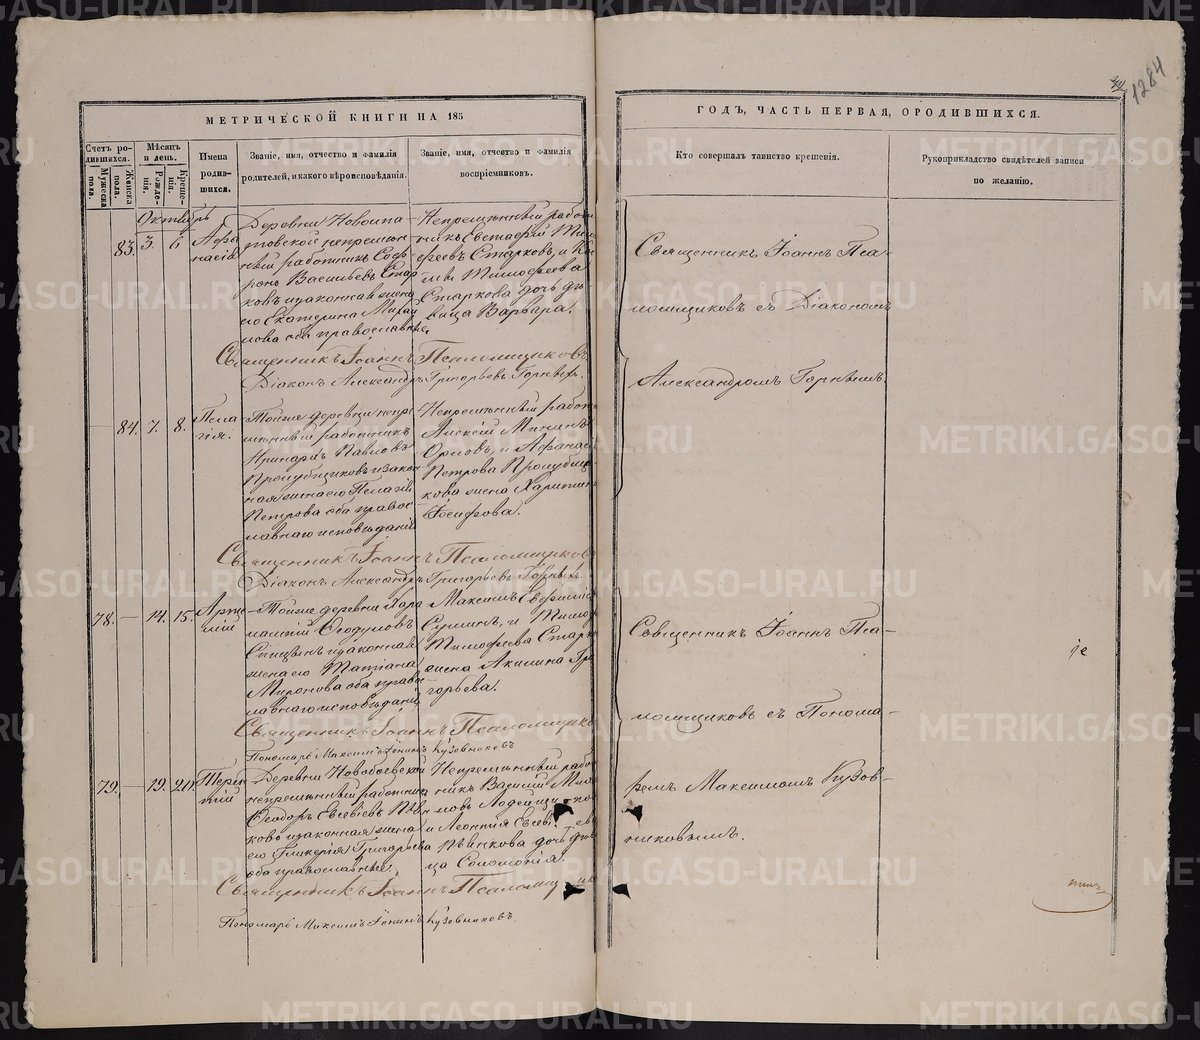 1284
МЕТРИЧЕСКОЙ КНИГИ НА 185
ГОДЪ, ЧАСТЬ ПЕРВАЯ, О РОДИВШИХСЯ.
Счетъ родившихся.
Мужеска пола.
Женска пола.
Мѣсяцъ и день.
Рожденія.
Крещенія.
Имена родившихся.
Званіе, имя, отчество и фамилія родителей, и какого вѣроисповѣданія.
Званіе, имя, отчество и фамилія воспріемниковъ.
Кто совершалъ таинство крещенія.
Рукоприкладство свидѣтелей записи по желанію.
Октябрь
83. 3. 6.
Афанасія
Деревни Новоипа-
товской непремѣн-
ный работникъ Соф-
ронъ Васильевъ Стар
ковъ и законная жена
его Екатерина Михай
лова оба православные.
Непремѣнный работ
никъ Евстафій Тимо
феевъ Старковъ, и
Тимофеева
Старкова дочь дѣ
вица Варвара.
Священникъ Іоаннъ Псаломщиковъ
Діаконъ Александръ Григорьевъ Горныхъ.
Священникъ Іоаннъ Псал-
помщиковъ съ Діакономъ
Александромъ Горныхъ.
84. 7. 8.
Пела-
гія.
Тойже деревни непре
мѣнный работникъ
Павловъ
Пролубщиковъ и закон
ная жена его Пелагія
Петрова оба право
славнаго исповѣданія
Непремѣнный работ
Алексій Мининъ
Орловъ, и Афанас
Петрова Пролубщи
кова жена Харитин
Іосифова.
Священникъ Іоаннъ Псаломщиковъ
Діаконъ Александръ Григорьевъ Горныхъ.
78. 14. 15.
Арте
мій
Тойже деревни Хар
лампій Ѳеодуловъ
Спицынъ и законная
жена его Татіана
Миронова оба право
славнаго исповѣданія
Максимъ Евфимі
Сурминъ, и Тимо
Тимофеева Старк
жена Акилина Гри
горьева.
Священникъ Іоаннъ Псаломщико
Пономарь Максимъ Іонинъ Кузовниковъ
Священникъ Іоаннъ Пса-
ломщиковъ съ Понома-
ремъ Максимомъ Кузов-
никовымъ.
79. 19. 20.
Терен
тій
Деревни Новобоевской
непремѣнный работник
Ѳеодоръ Евсевіевъ Пѣн
ковъ и законная жена
его Гликерія Григорьева
оба православные.
Непремѣнный рабо
никъ Василій
и Леонтія Евсеві
Пѣнкова дочь дѣв
ца Соломонія.
Священникъ Іоаннъ Псаломщик
Пономарь Максимъ Іонинъ Кузовниковъ.
METRIKI.GASO-URAL.RU